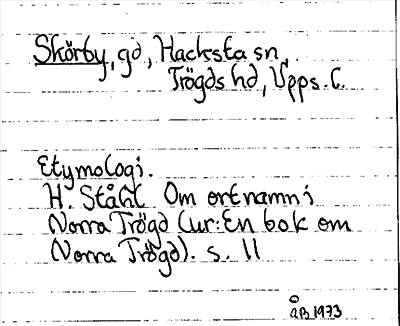 Skörby, gd, Hacksta sn,
Trögds hd, Upps. C.
Etymologi.
H. Ståhl Om ortnamn i
Norra Trögd (ur: En bok om
Norra Trögd). s. 11
ÅB 1973